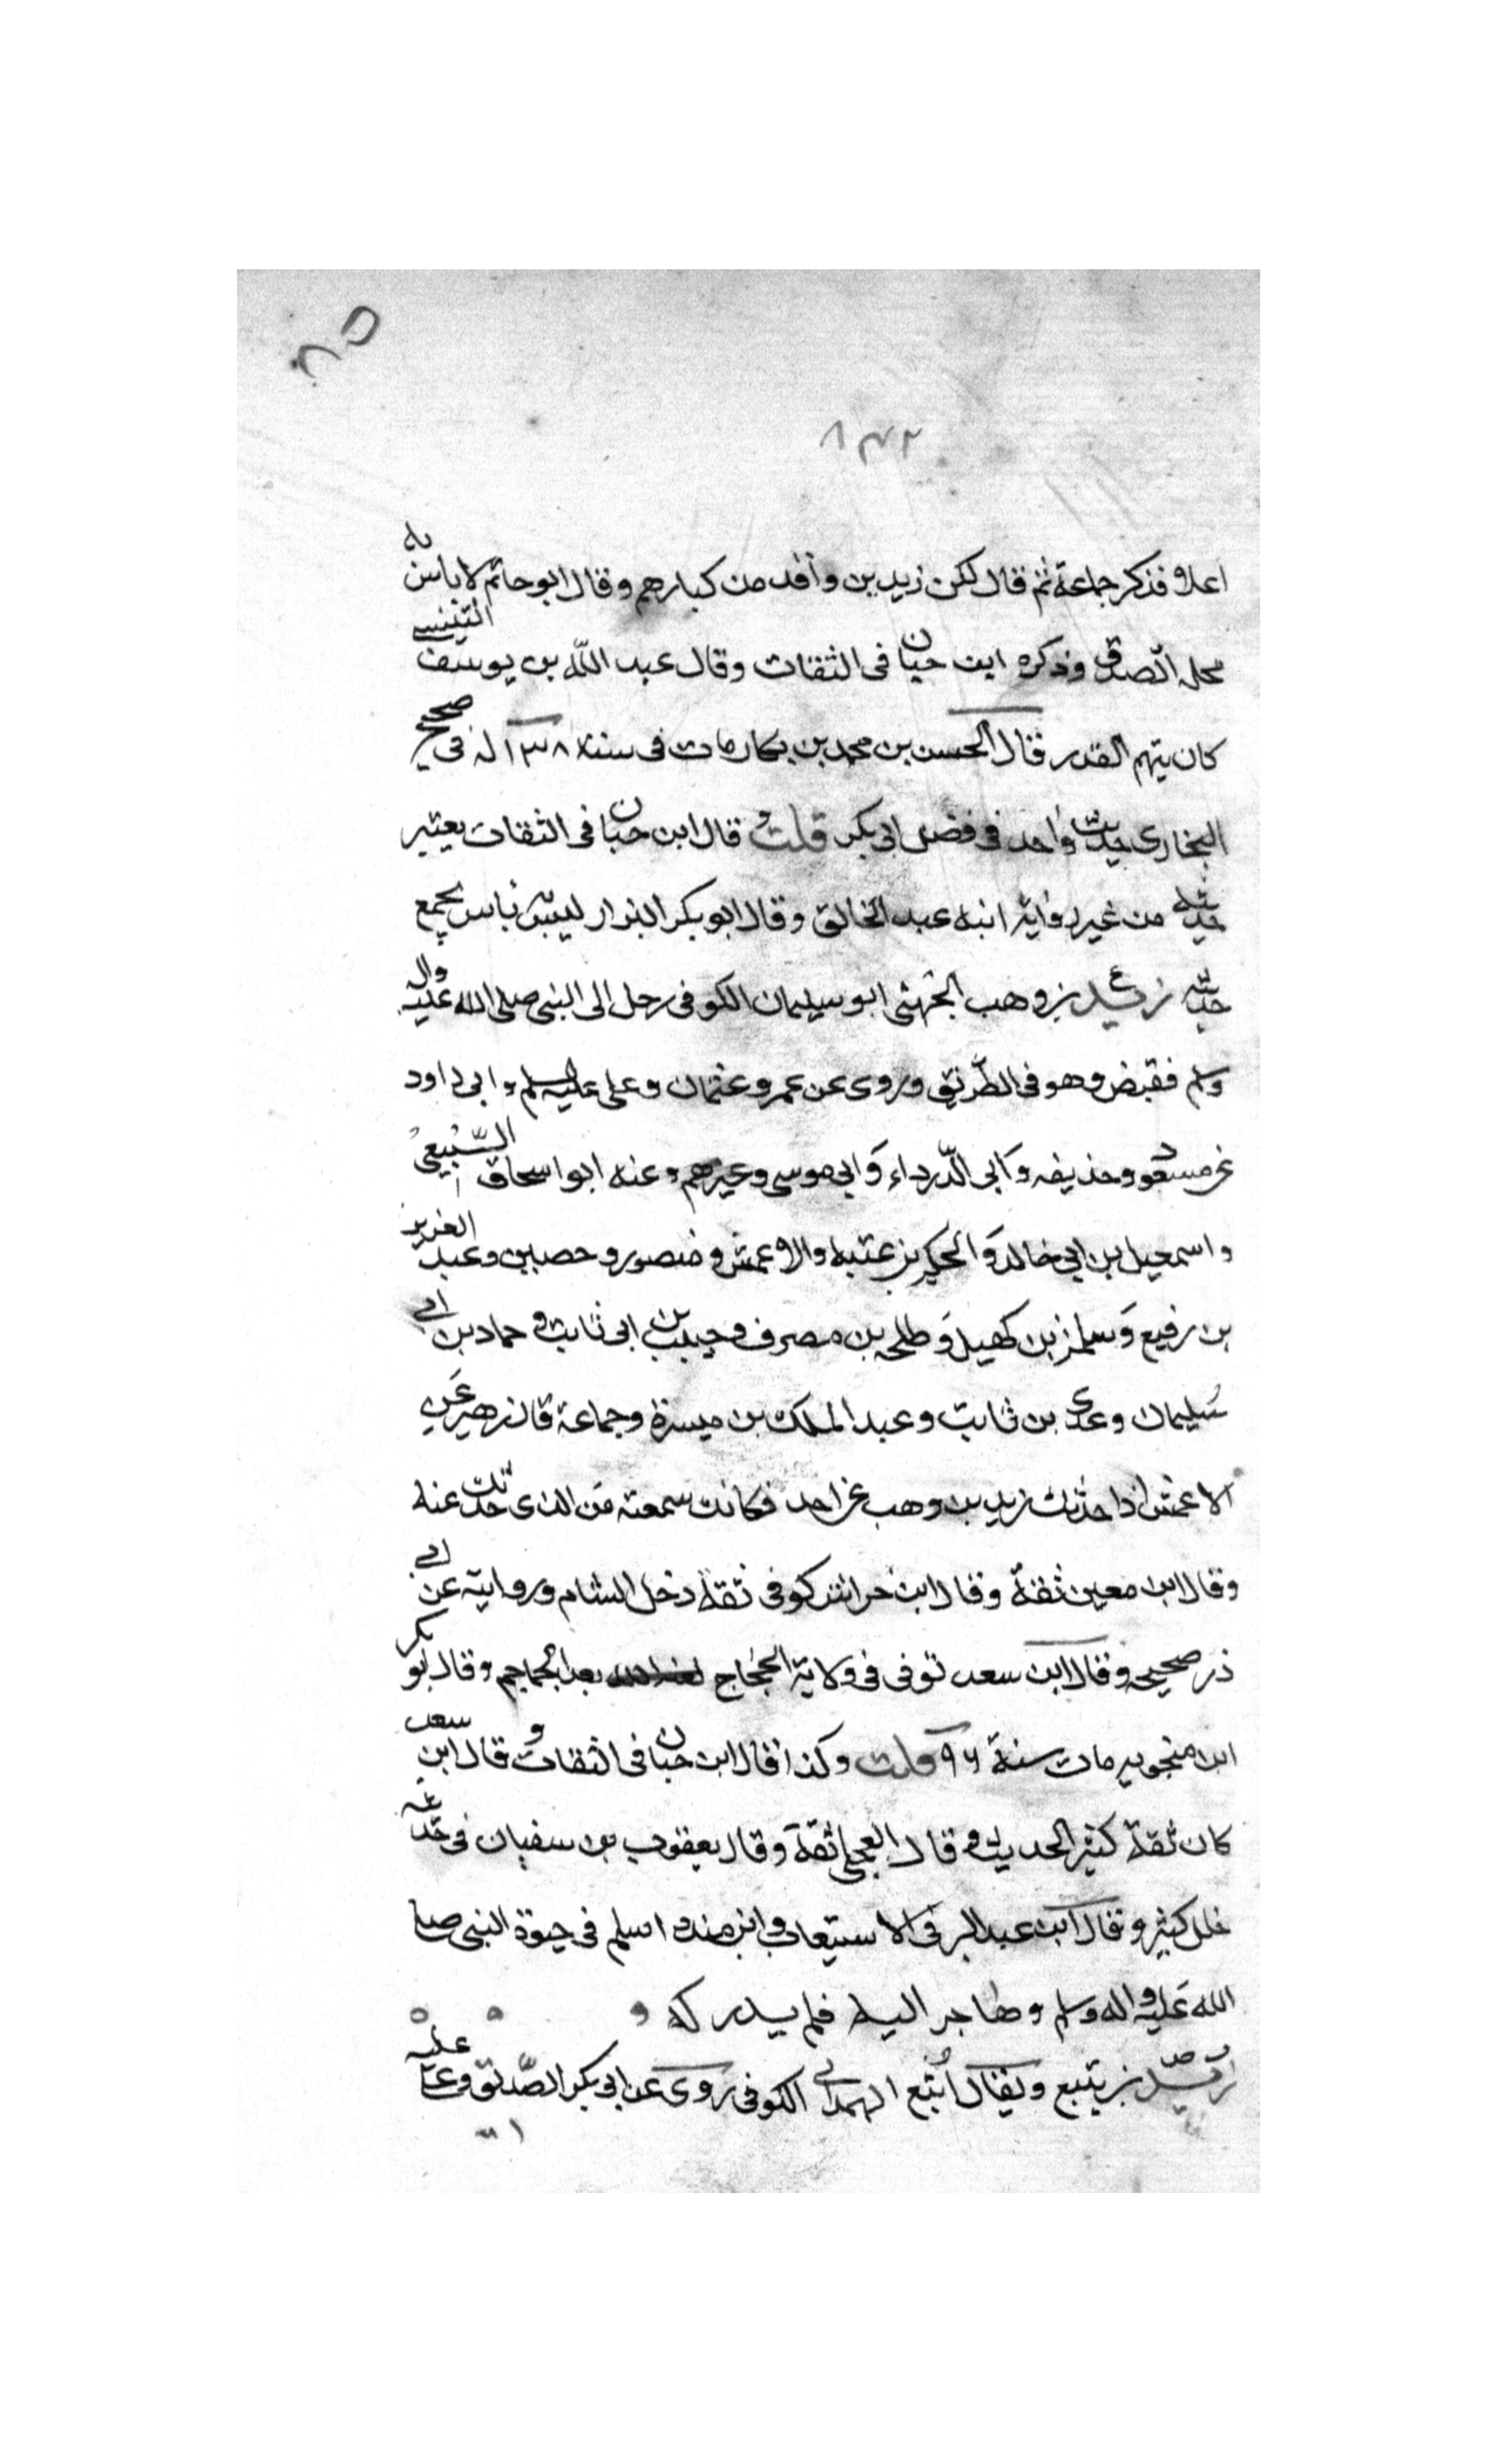 ٨٥
٨٣٢
اعلاو فذكر جماعة ثم قال لكن زيد بن واقد من كبارهم وقال ابو حاتم لا باس به
محله الصدق وذكره ابن حبان فى الثقات وقال عبد الله بن يوسف التنيسى
كان يتهم القدر قال الحسن بن محمد بن بكار مات فى سنة ١٣٨ له فى صحيح
البخارى حديث واحد فى فضل ابى بكر قلت قال ابن حبان فى الثقات يعتبر
حديثه من غير رواية ابنه عبد الخالق وقال ابو بكر البزار ليس به باس يجمع
حديثه زيد بن وهب الجهنى ابو سليمان الكوفى رحل الى النبى صلى الله عليه واله
وسلم فقبض وهو فى الطريق وروى عن عمر وعثمان وعلى عليه السلم وابى داود
عن مسعود وحذيفه وابى الدرداء وابى موسى وغيرهم وعنه ابو اسحاق السبيعى
واسمعيل بن ابى خالد والحكم بن عتبه والاعمش ومنصور وحصين وعبد العزيز
بن رفيع وسلمة بن كهيل وطلحه بن مصرف وحبيب بن ابى ثابت وحماد بن ابى
سليمان وعدى بن ثابت وعبد الملك بن ميسرة وجماعة قال زهير عن
الاعمش اذا حدثك زيد بن وهب عن احد فكانك سمعته من الذى حدثك عنه
وقال ابن معين ثقة وقال ابن خراش كوفى ثقة دخل الشام وروايته عن ابى
ذر صحيحه وقال ابن سعد توفى فى ولاية الحجاج بعد الجماجم وقال ابو بكر
ابن منجويه مات سنة ٩٦ قلت وكذا قال ابن حبان فى الثقات وقال ابن سعد
كان ثقة كثير الحديث وقال العجلى ثقة وقال يعقوب بن سفيان فى حديثه
خلل كثير وقال ابن عبد البر فى الاستيعاب وابن منده اسلم فى حيوة النبى صلى
الله عليه واله وسلم وهاجر اليه فلم يدركه
زيد بن يثيع ويقال اثيع الهمدانى الكوفى روى عن ابى بكر الصديق وعلى عليه